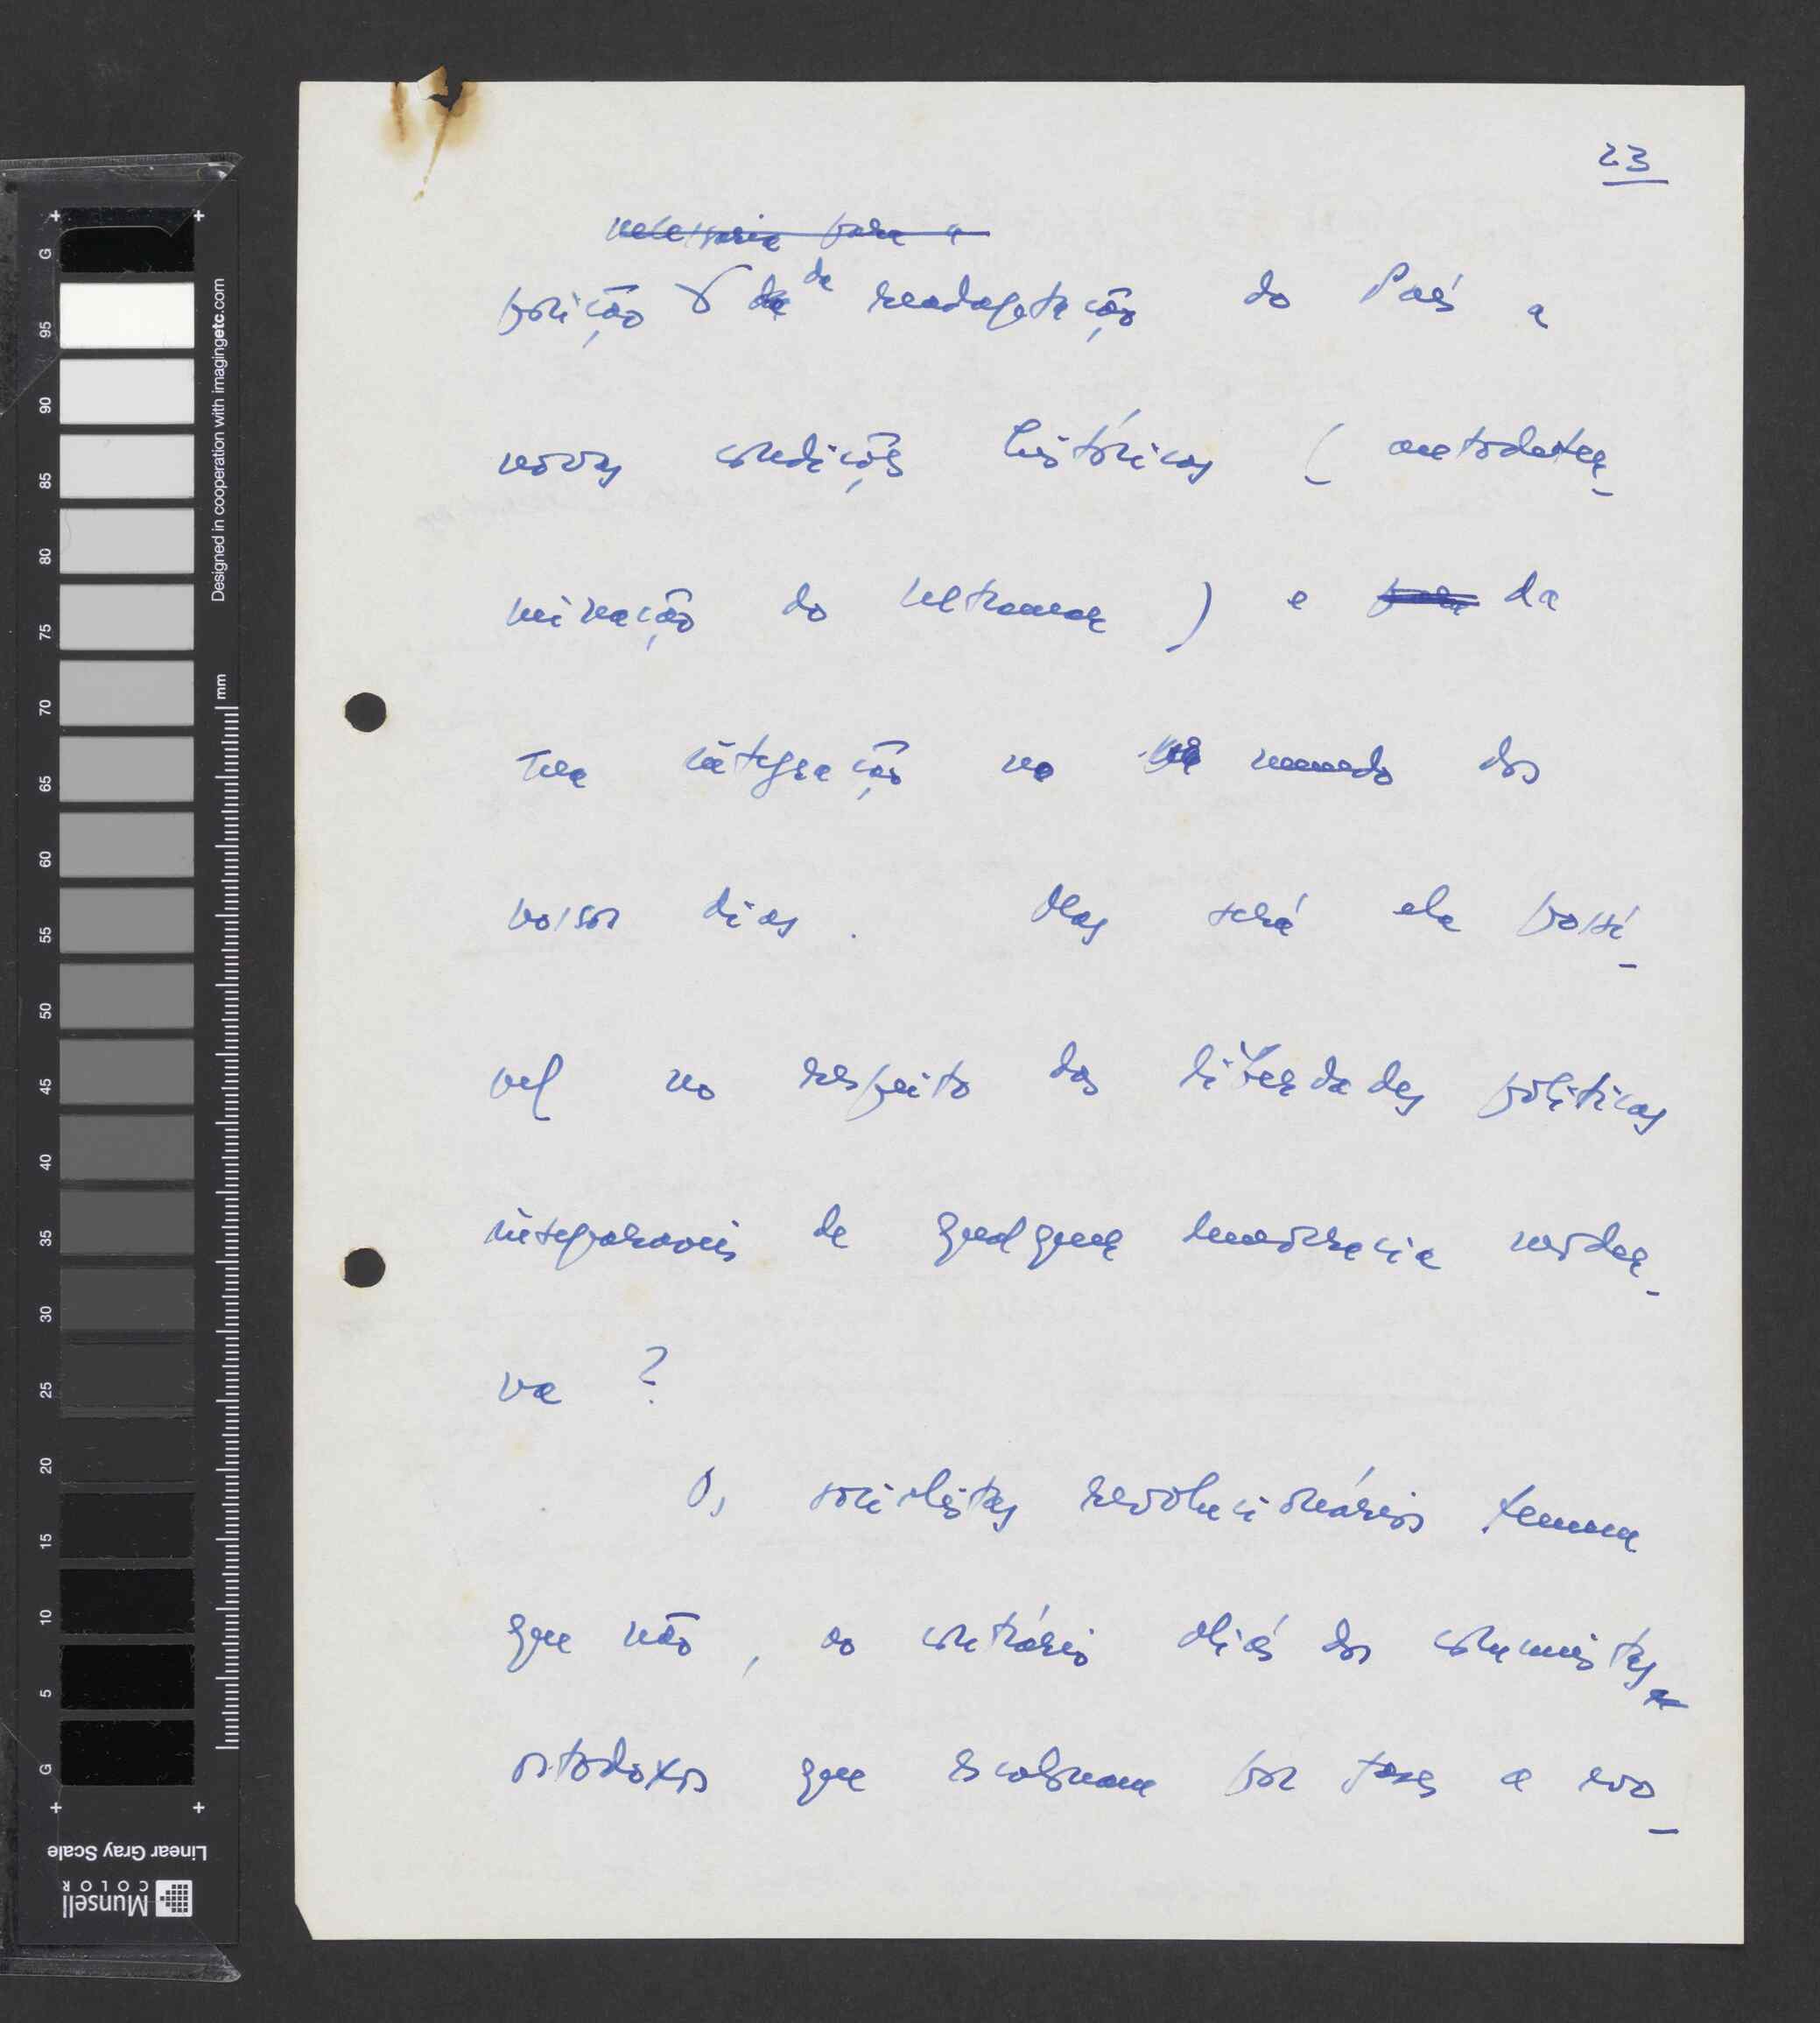 23
necessária para a
posição da de readaptação do País a
novas condições históricas ( autodeter-
minação do ultramar ) e para da
sua integração no mundo dos
nossos dias . Mas será ela possí-
vel no respeito das liberdades políticas
inseparáveis de qualquer democracia moder-
na ?
Os socialistas revolucionários temem
que não , ao contrário aliás dos comunistas
ortodoxos que escalonam por fases a revo-
G
95
90
85
80
75
70
65
60
55
50
45
40
35
30
25
20
15
10
5
G
mm
Designed in cooperation with imagingetc.com
Linear Gray Scale
Munsell
COLOR